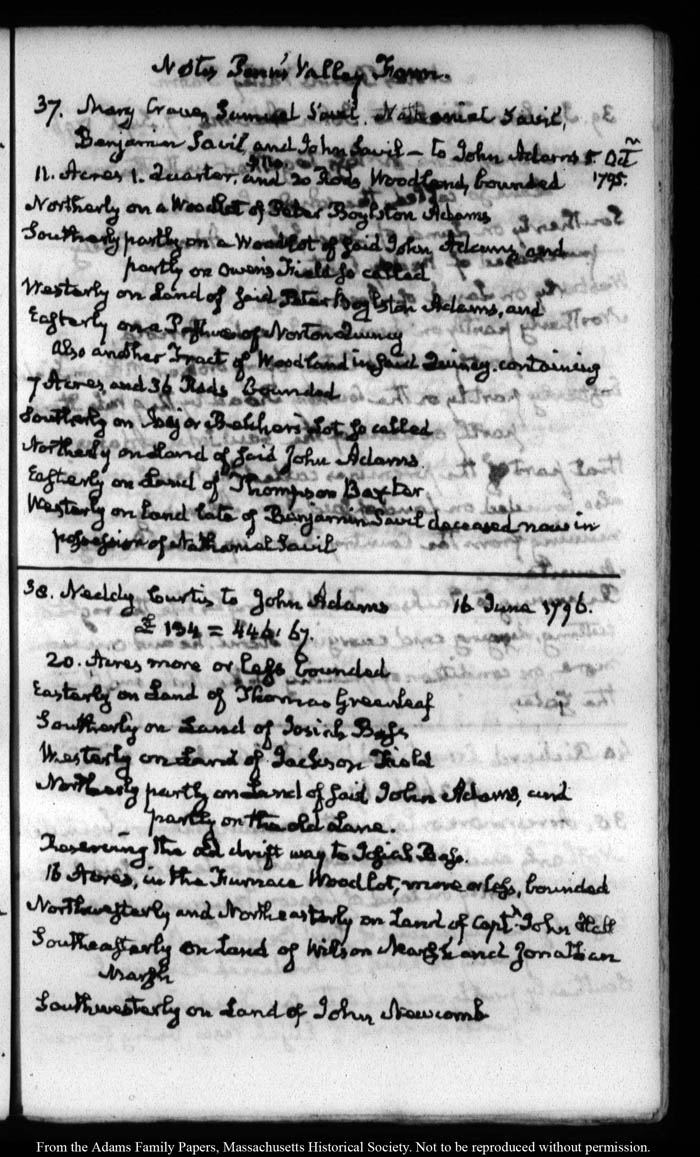 Notes Penn's Valley Farm.
37. Mary Crane, Samuel Savil, Nathaniel Savil,
Benjamin Savil, and John Savil — to John Adams 5. Oct.
1795.
11. Acres 1. Quarter, and 20 Rods Woodland, bounded
Northerly on a Woodlot of Peter Boylston Adams
Southerly partly on a Woodlot of said John Adams, and
partly on Owen's Field so called
Westerly on Land of said Peter Boylston Adams, and
Easterly on a Pasture of Norton Quincy
Also another Tract of Woodland in said Quincy, containing
7 Acres, and 36 Rods, Bounded
Southerly on Major Belchers Lot so called
Northerly on Land of said John Adams.
Easterly on Land of Thompson Baxter,
Westerly on Land late of Benjamin Savil deceased now in
possession of Nathaniel Savil
38. Neddy Curtis to John Adams 16 June 1796.
£ 134 = 446,67.
20. Acres more or less bounded
Easterly on Land of Thomas Greenleaf
Southerly on Land of Josiah Bass
Westerly on Land of Jackson Field
Northerly partly on Land of said John Adams, and
partly on the old Lane.
Reserving the old drift way to Josiah Bass.
16 Acres, in the Furnace Woodlot, more or less, bounded
Northwesterly and Northeasterly on Land of Captn. John Hall
Southeasterly on Land of Wilson Marsh and Jonathan
Marsh
Southwesterly on Land of John Newcomb
From the Adams Family Papers, Massachusetts Historical Society. Not to be reproduced without permission.